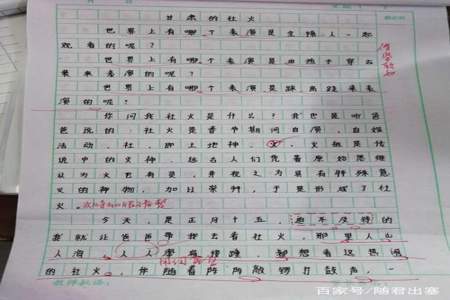 甘肃的社火
世界上有哪个表演是全镇人一起
观看的呢?
世界上有哪个表演是由孩子穿古
装来表演的呢?
世界上有哪个表演是踩高跷来表
演的呢?
你问我社火是什么?我也是听爸
爸说的:社火是春节期间自演、自娱
活动,社,即上地神,火,火祖是传
说中的火神,远古人们凭着原始思维
认为火也有灵,并视之为具有特殊意
义的神物,加以崇拜,于是形成了社
火。
今天,是正月十五,迫不及待的
我就让爸爸带我去看社火,那里人山
人海,人人摩肩接踵,都想看这热闹
的社火,伴随着阵阵敲锣打鼓声,一
教师献语:
百家号/随君出塞